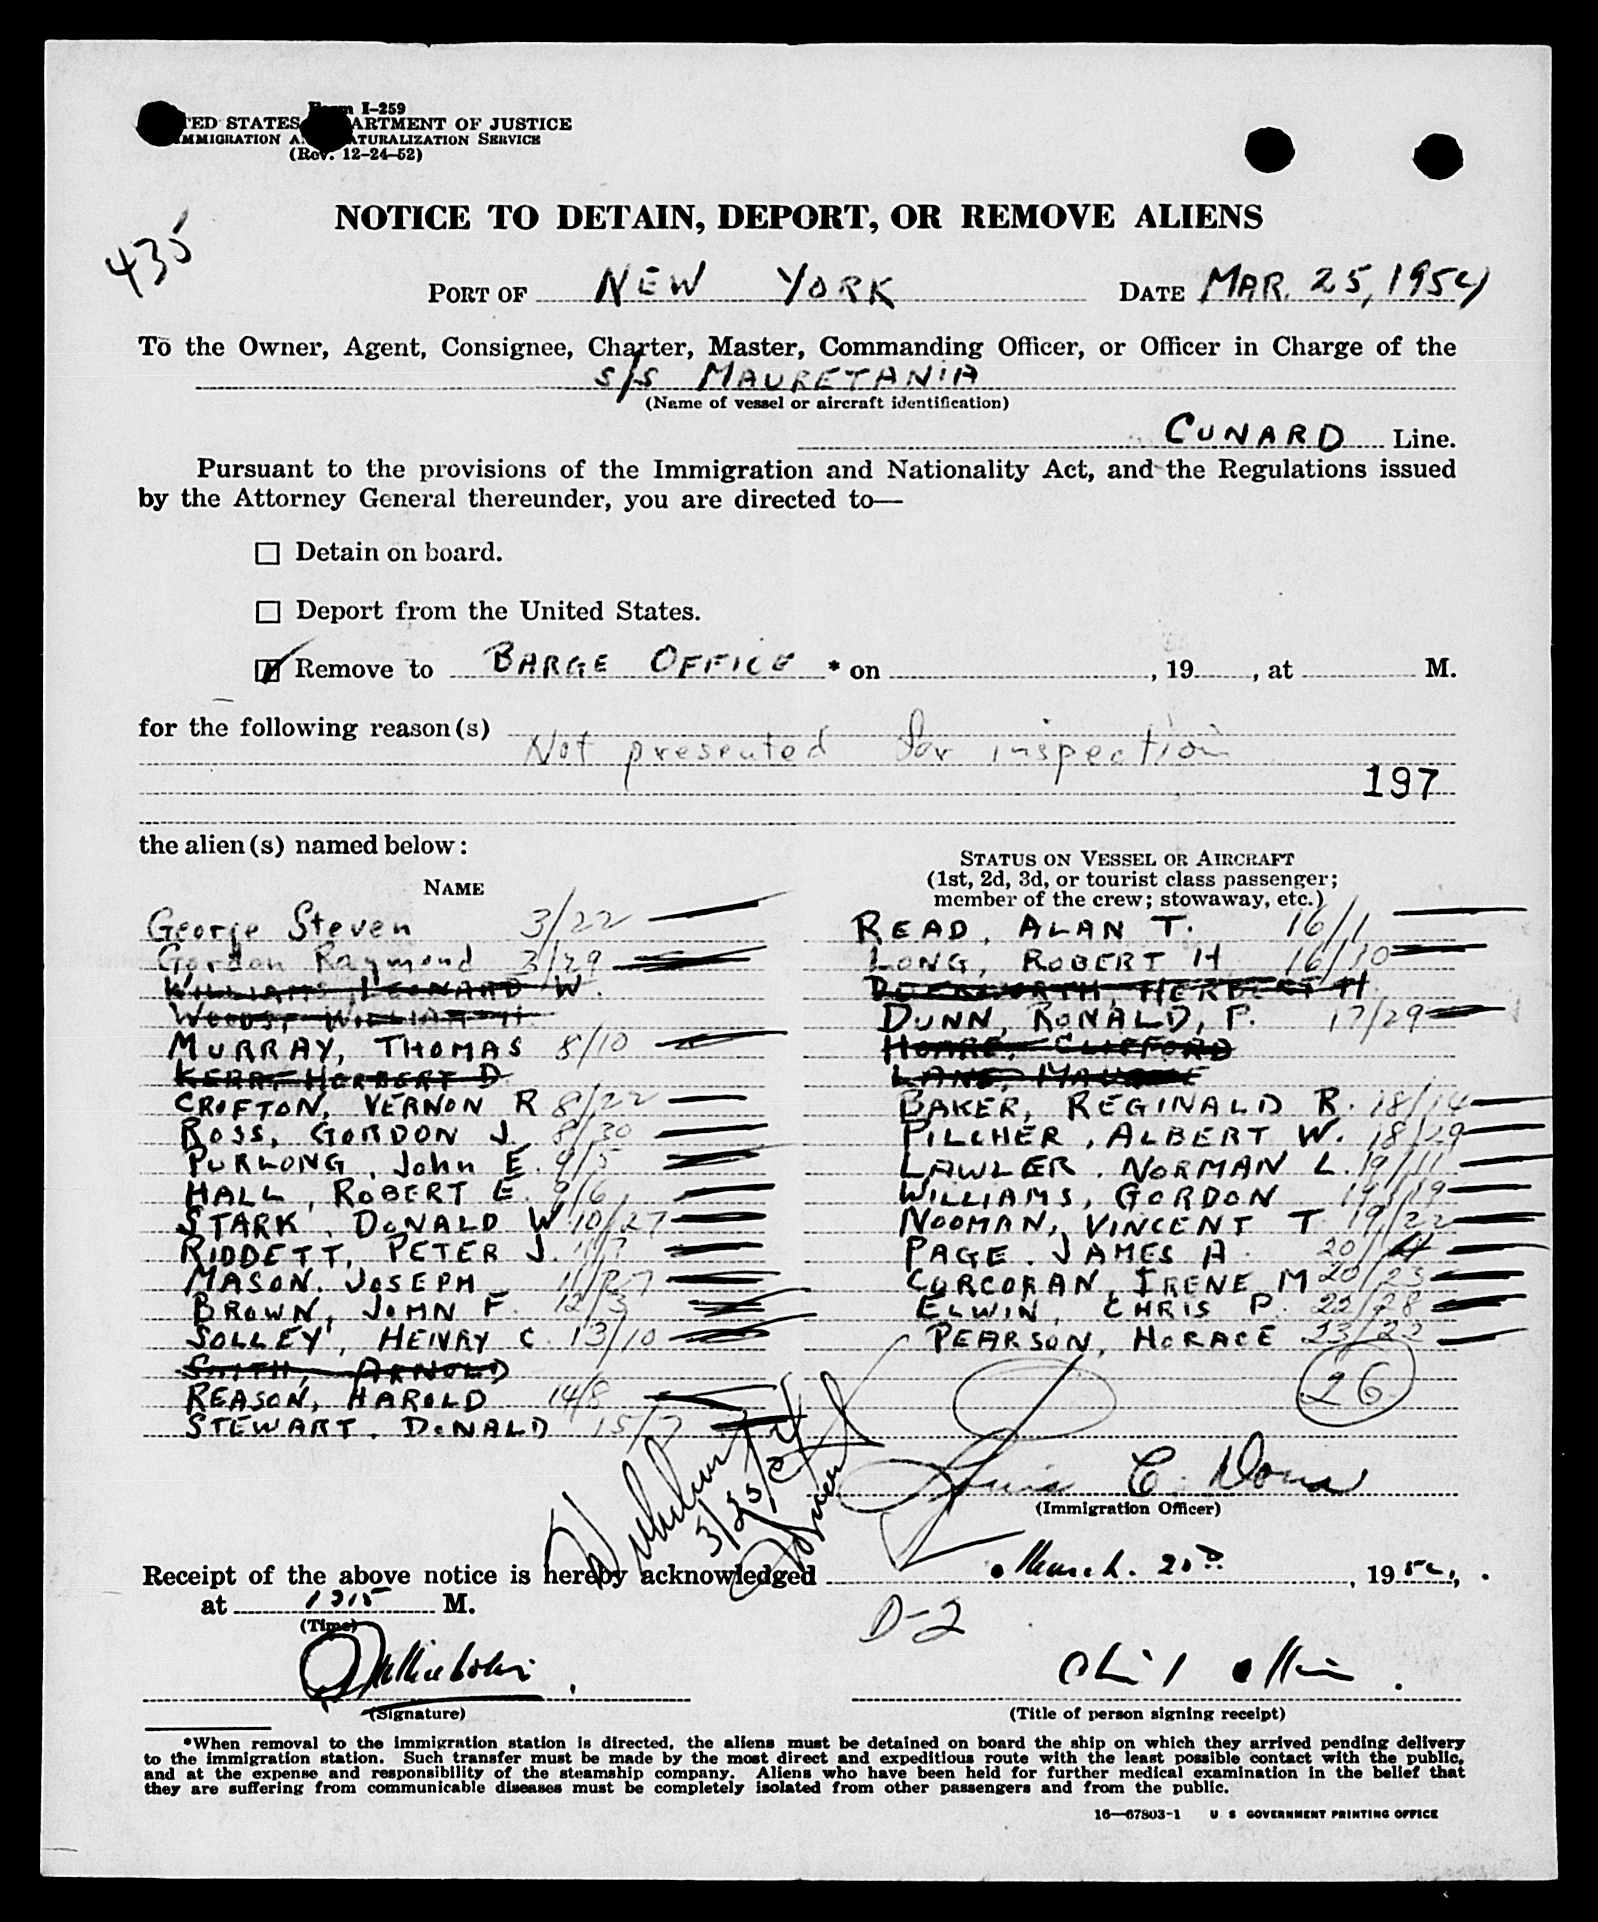 Form I-259
UNITED STATES DEPARTMENT OF JUSTICE
IMMIGRATION AND NATURALIZATION SERVICE
(Rev. 12-24-52)
435
NOTICE TO DETAIN, DEPORT, OR REMOVE ALIENS
PORT OF NEW YORK DATE MAR. 25, 1954
To the Owner, Agent, Consignee, Charter, Master, Commanding Officer, or Officer in Charge of the
S/S MAURETANIA
(Name of vessel or aircraft identification)
CUNARD Line.
Pursuant to the provisions of the Immigration and Nationality Act, and the Regulations issued
by the Attorney General thereunder, you are directed to—
Detain on board.
Deport from the United States.
Remove to BARGE OFFICE * on , 19 , at M.
for the following reason(s)
Not presented for inspection
197
the alien(s) named below:
NAME
George Steven 3/22
Gordon Raymond 3/29
WILLIAMS, LEONARD W.
WOODS, WILLIAM H.
MURRAY, THOMAS 8/10
KERR, HERBERT D
CROFTON, VERNON R 8/22
ROSS, GORDON J. 8/30
PURLONG, John E. 9/5
HALL, ROBERT E. 9/6
STARK, DONALD W 10/27
RIDDETT, PETER J. 11/7
MASON, JOSEPH 11/27
BROWN, JOHN F. 12/3
SOLLEY, HENRY C. 13/10
SMITH, ARNOLD
REASON, HAROLD 14/8
STEWART, DONALD 15/7
STATUS ON VESSEL OR AIRCRAFT
(1st, 2d, 3d, or tourist class passenger;
member of the crew; stowaway, etc.)
READ, ALAN T. 16/1
LONG, ROBERT H 16/10
HERBERT H
DUNN, RONALD, P. 17/29
HOARE, CLIFFORD
LANE,
BAKER, REGINALD R. 18/14
PILCHER, ALBERT W. 18/29
LAWLER, NORMAN L. 19/11
WILLIAMS, GORDON 19/19
NOOMAN, VINCENT T 19/22
PAGE, JAMES A. 20/4
CORCORAN, IRENE M 20/23
ELWIN, CHRIS P. 22/28
PEARSON, HORACE 23/22
26
3/25/54
Louis C.
(Immigration Officer)
Receipt of the above notice is hereby acknowledged March 1954,
at 1315 M.
(Time)
D-2
(Signature)
(Title of person signing receipt)
*When removal to the immigration station is directed, the aliens must be detained on board the ship on which they arrived pending delivery
to the immigration station. Such transfer must be made by the most direct and expeditious route with the least possible contact with the public,
and at the expense and responsibility of the steamship company. Aliens who have been held for further medical examination in the belief that
they are suffering from communicable diseases must be completely isolated from other passengers and from the public.
16—67803-1 U S GOVERNMENT PRINTING OFFICE